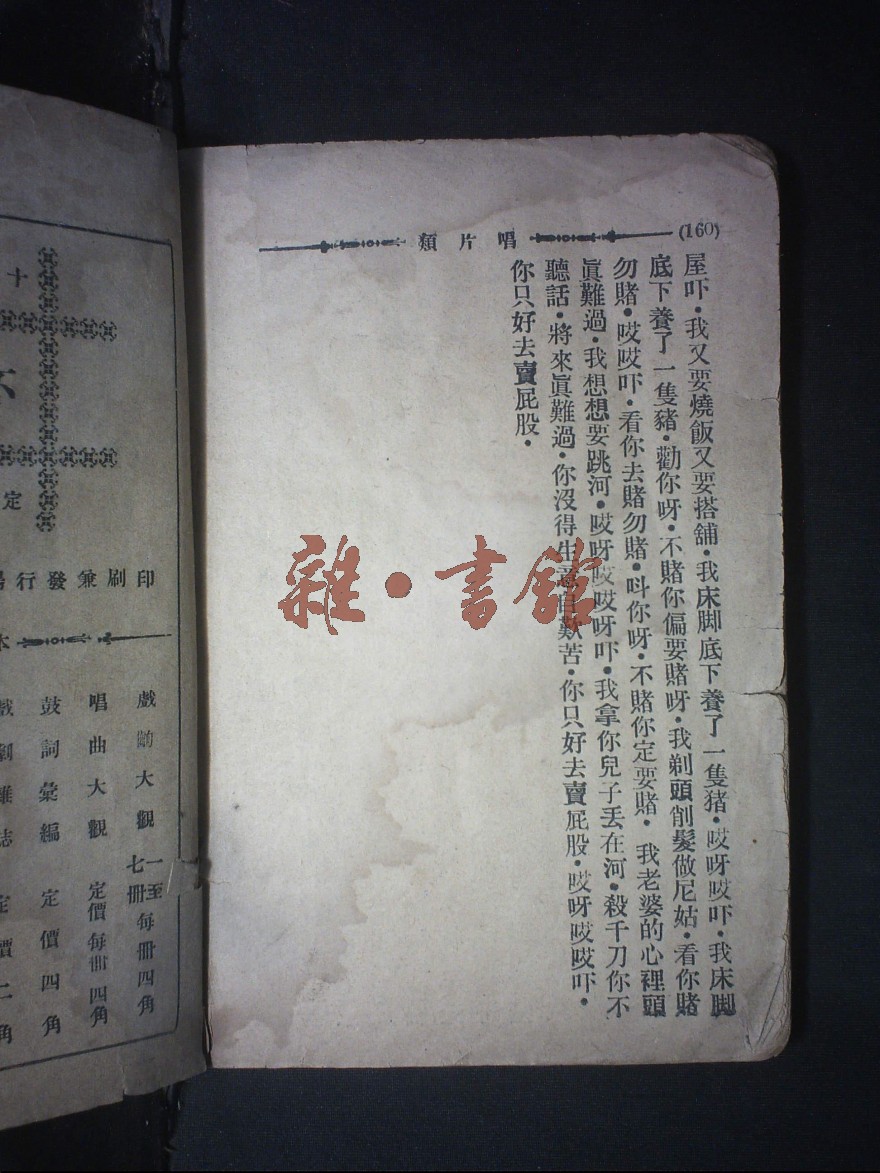 (160)
唱片類
屋吓•我又要燒飯又要搭舖•我床脚底下養了一隻猪•哎呀哎吓•我床脚
底下養了一隻豬•勸你呀•不賭你偏要賭呀•我剃頭削髮做尼姑•看你賭
勿賭•哎哎吓•看你去賭勿賭•呌你呀•不賭你定要賭•我老婆的心裡頭
眞難過•我想想要跳河•哎呀哎哎呀吓•我拿你兒子丟在河•殺千刀你不
聽話•將來眞難過•你沒得生意自歎苦•你只好去賣屁股•哎呀哎哎吓•
你只好去賣屁股•
雜•書館
十
定
印刷兼發行
戲齣大觀 一至七冊 每冊四角
唱曲大觀 定價每冊四角
鼓詞彙編 定價四角
戲劇雜誌 定價二角